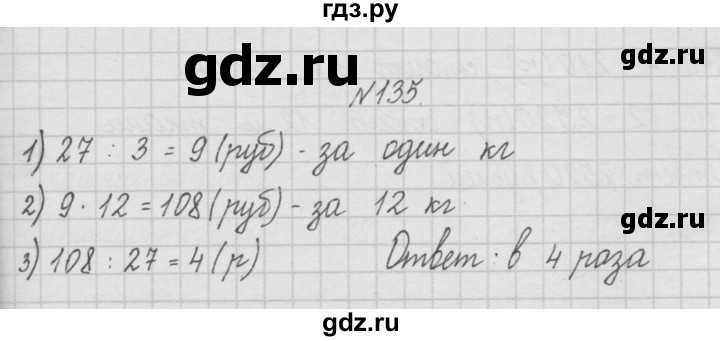 гдз.ру
gdz.ru
gdz.ru
№135.
1) 27 : 3 = 9 (руб) - за один кг
2) 9 · 12 = 108 (руб) - за 12 кг.
3) 108 : 27 = 4 (р)
Ответ: в 4 раза
gdz.ru